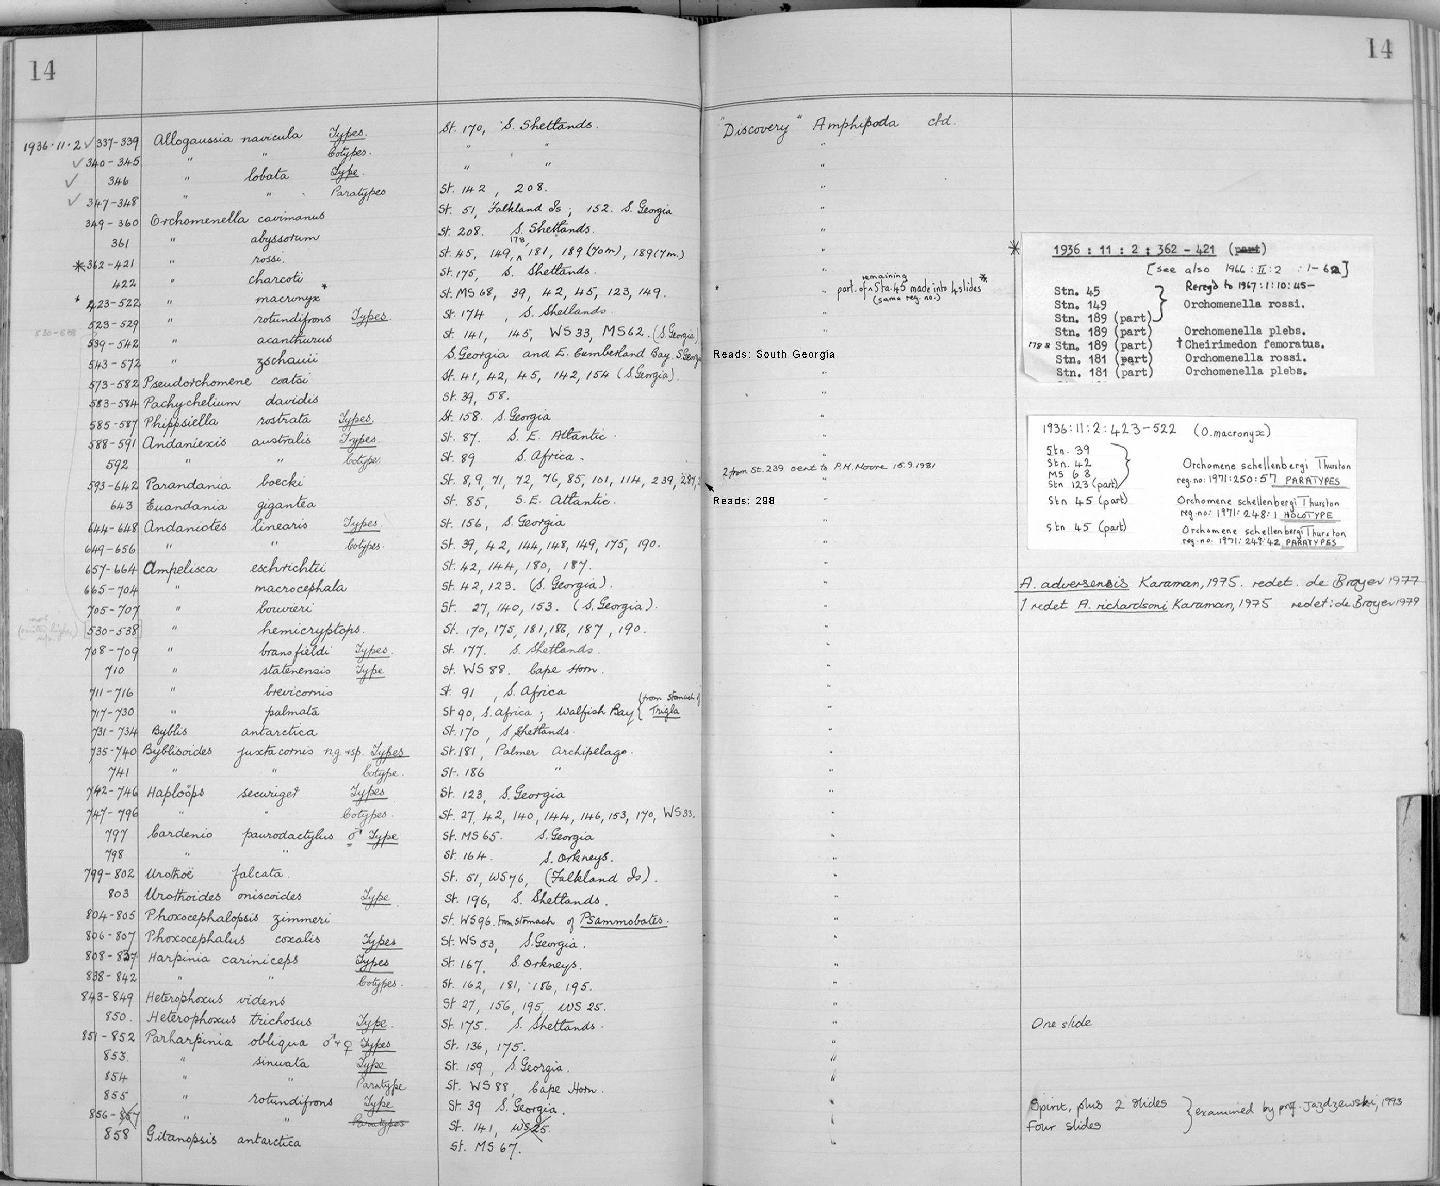 14
14
1936·11·2 ✓ 337-339 Allogaussia navicula Types. St. 170, S. Shetlands. "Discovery" Amphipoda ctd.
✓ 340-345 " " Cotypes. " " "
✓ 346 " lobata Type. " " "
✓ 347-348 " " Paratypes St. 142, 208. "
349-360 Orchomenella cavimanus St. 51, Falkland Is; 152. S. Georgia "
361 " abyssorum St. 208. S. Shetlands. "
*362-421 " rossi. St. 45, 149, 178, 181, 189 (70m), 189 (7m.) "
422 " charcoti St. 175, S. Shetlands. "
* 423-522 " macronyx* St. MS 68, 39, 42, 45, 123, 149. * part of remaining Sta. 45 made into 4 slides* (same reg. no.)
523-529 " rotundifrons Types. St. 174, S. Shetlands. "
530-538
539-542 " acanthurus St. 141, 145, WS 33, MS 62. (S. Georgia) "
543-572 " zschauii S. Georgia and E. Cumberland Bay. S. Georgia Reads: South Georgia
573-582 Pseudorchomene coatsi St. 41, 42, 45, 142, 154 (S. Georgia). "
583-584 Pachychelium davidis St. 39, 58. "
585-587 Phippsiella rostrata Types. St. 158. S. Georgia "
588-591 Andaniexis australis Types. St. 87. S. E. Atlantic. "
592 " " Cotype. St. 89 S. Africa. "
593-642 Parandania boecki St. 8, 9, 71, 72, 76, 85, 101, 114, 239, 287, 2 from St. 239 sent to P.M. Moore 15.9.1981
Reads: 298
643 Euandania gigantea St. 85, S. E. Atlantic. "
644-648 Andaniotes linearis Types St. 156, S. Georgia "
649-656 " " Cotypes. St. 39, 42, 144, 148, 149, 175, 190. "
657-664 Ampelisca eschrichtii St. 42, 144, 180, 187. "
665-704 " macrocephala St. 42, 123. (S. Georgia). "
705-707 " bouvieri St. 27, 140, 153. (S. Georgia). "
[530-538] " hemicryptops. St. 170, 175, 181, 186, 187, 190. "
708-709 " bransfieldi Types. St. 177. S. Shetlands. "
710 " statenensis Type St. WS 88. Cape Horn. "
711-716 " brevicornis St. 91, S. Africa "
717-730 " palmata St 90, S. Africa; Walfish Bay { (from stomach of Trigla "
731-734 Byblis antarctica St. 170, S Shetlands. "
735-740 Byblisoides juxtacornis n.g. + sp. Types St. 181, Palmer Archipelago. "
741 " " Cotype. St. 186 "
742-746 Haploöps securiger Types St. 123, S. Georgia "
747-796 " " Cotypes. St. 27, 42, 140, 144, 146, 153, 170, WS 33. "
797 Cardenio paurodactylus ♂ Type St. MS 65. S. Georgia "
798 " " St. 164. S. Orkneys. "
799-802 Urothoë falcata. St. 51, WS 76, (Falkland Is). "
803 Urothoides oniscoides Type St. 196, S. Shetlands. "
804-805 Phoxocephalopsis zimmeri St. WS 96. From stomach of Psammobates. "
806-807 Phoxocephalus coxalis Types St. WS 53, S. Georgia. "
808-837 Harpinia cariniceps Types St. 167. S. Orkneys. "
838-842 " " Cotypes. St. 162, 181, 186, 195. "
843-849 Heterophoxus videns St 27, 156, 195, WS 25. "
850. Heterophoxus trichosus Type. St. 175. S. Shetlands. " One slide
851-852 Parharpinia obliqua ♂ + ♀ Types St. 136, 175. "
853. " sinuata Type St. 159, S. Georgia. "
854 " " Paratype St. WS 88, Cape Horn. "
855 " rotundifrons Type St. 39 S. Georgia. " Spirit, plus 2 slides } examined by prof. Jazdzewski, 1993
856-857 " " Paratypes St. 141, WS25. " Four slides
858 Gitanopsis antarctica St. MS 67. "
* 1936 : 11 : 2 : 362 - 421 (part)
[see also 1966 : II : 2 : 1-62]
Stn. 45 Rereg'd to 1967:1:10:45-
Stn. 149 Orchomenella rossi.
Stn. 189 (part)
Stn. 189 (part) Orchomenella plebs.
178 & Stn. 189 (part) †Cheirimedon femoratus.
Stn. 181 (part) Orchomenella rossi.
Stn. 181 (part) Orchomenella plebs.
1936:11:2:423-522 (O. macronyx)
Stn. 39
Stn. 42 Orchomene schellenbergi Thurston
MS 68 reg. no: 1971:250:57 PARATYPES
Stn 123 (part)
Stn 45 (part) Orchomene schellenbergi Thurston
reg. no: 1971:248:1 HOLOTYPE
Stn 45 (part) Orchomene schellenbergi Thurston
reg. no: 1971:249:42 PARATYPES
A. adversensis Karaman, 1975. redet. de Broyer 1977
1 redet A. richardsoni Karaman, 1975 redet: de Broyer 1979